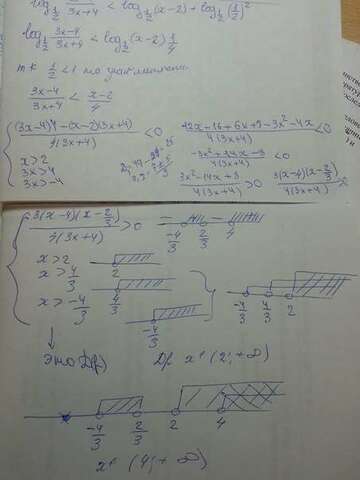 log_{1/2} (3x-4)/(3x+4) < log_{1/2}(x-2) + log_{1/2}(1/2)^2
log_{1/2} (3x-4)/(3x+4) < log_{1/2}(x-2) 1/4
т.к 1/2 < 1 то знак меняем
(3x-4)/(3x+4) < (x-2)/4
((3x-4)4-(x-2)(3x+4))/(4(3x+4)) < 0
x > 2
3x > 4
3x > -4
(12x-16+6x+8-3x^2-4x)/(4(3x+4)) < 0
(-3x^2+14x-8)/(4(3x+4)) < 0
(3x^2-14x+8)/(4(3x+4)) > 0
3(x-4)(x-2/3)/(4(3x+4))
3(x-4)(x-2/3)/(4(3x+4)) > 0
-4/3 2/3 4
x > 2
2
x > 4/3
4/3
x > -4/3
-4/3
-4/3 4/3 2
Это Df)
Df x ∈ (2; +∞)
-4/3 2/3 2 4
x ∈ (4; +∞)